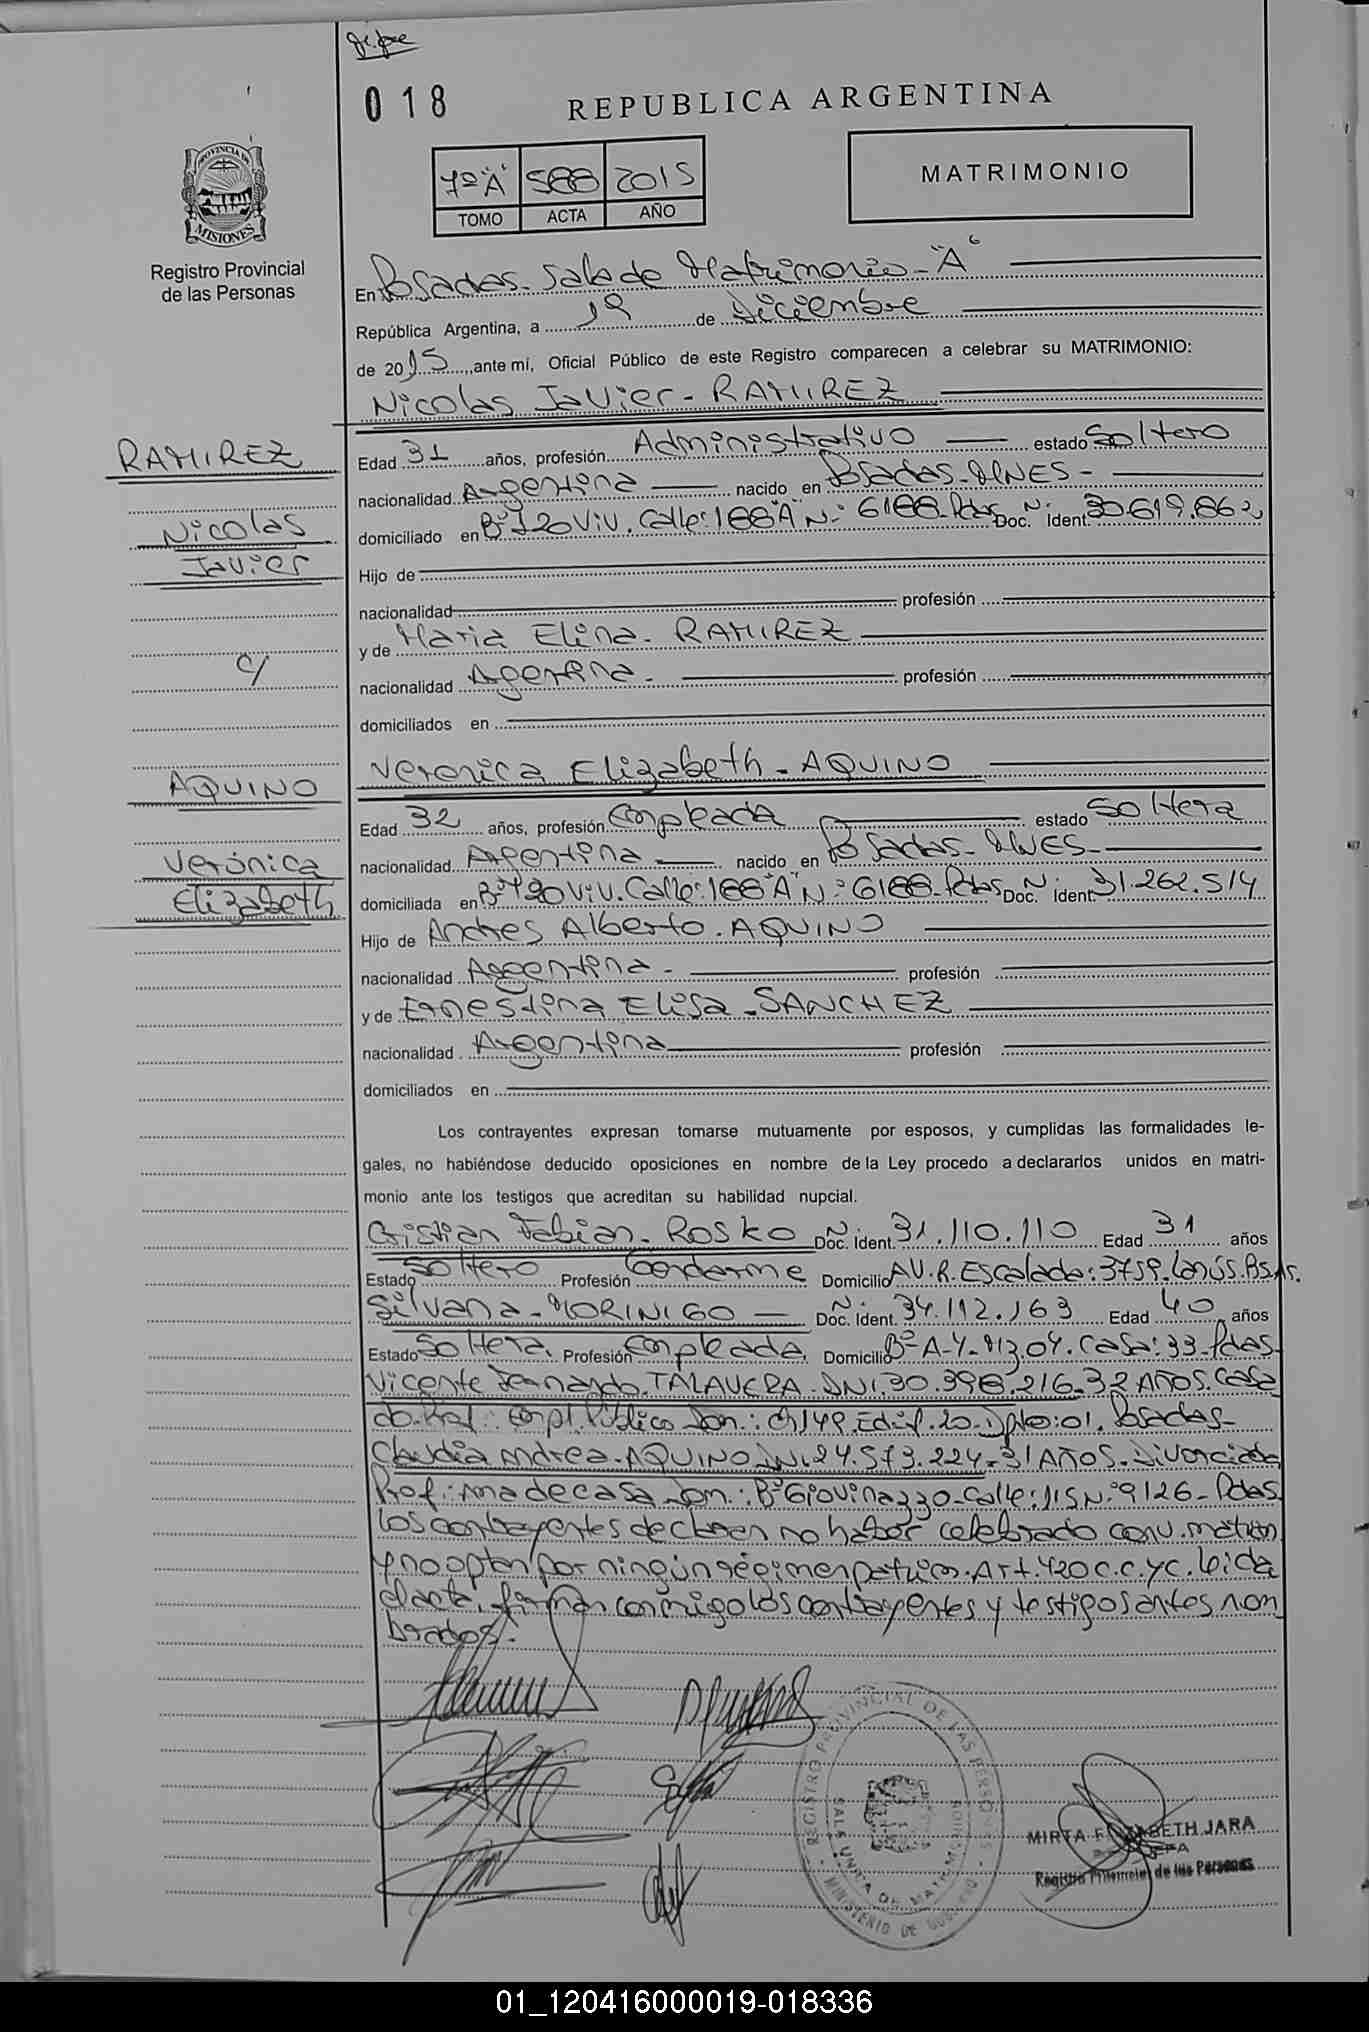 018
REPUBLICA ARGENTINA
7º"A" 588 2015
TOMO ACTA AÑO
MATRIMONIO
PROVINCIA DE
MISIONES
Registro Provincial
de las Personas
En Posadas. Sala de Matrimonio-"A"
República Argentina, a 19 de Diciembre
de 2015, ante mí, Oficial Público de este Registro comparecen a celebrar su MATRIMONIO:
Nicolas Javier-RAMIREZ
RAMIREZ
Nicolas
Javier
c/
AQUINO
Verónica
Elizabeth
Edad 31 años, profesión Administrativo estado Soltero
nacionalidad Argentina nacido en Posadas-MNES-
domiciliado en Bº 120 Viv. Calle: 188"A" N: 6188-Pdas Doc. Nº ident. 30.619.862
Hijo de
nacionalidad profesión
y de Maria Elina-RAMIREZ
nacionalidad Argentina. profesión
domiciliados en
Veronica Elizabeth-AQUINO
Edad 32 años, profesión Empleada estado Soltera
nacionalidad Argentina nacido en Posadas-MNES-
domiciliada en Bº 120 Viv. Calle: 188"A" N: 6188-Pdas Doc. Nº ident 31.262.514
Hijo de Andres Alberto. AQUINO
nacionalidad Argentina- profesión
y de Ernestina Elisa-SANCHEZ
nacionalidad Argentina profesión
domiciliados en
Los contrayentes expresan tomarse mutuamente por esposos, y cumplidas las formalidades le-
gales, no habiéndose deducido oposiciones en nombre de la Ley procedo a declararlos unidos en matri-
monio ante los testigos que acreditan su habilidad nupcial.
Cristian Fabian-ROSKO Doc. Nº Ident. 31.110.110 Edad 31 años
Estado Soltero Profesión Gendarme Domicilio AV. R. Escalada: 3759. Lanús. Bs. As.
Silvana-MORINIGO Doc. Nº ident. 34.112.163 Edad 40 años
Estado Soltera. Profesión Empleada. Domicilio Bº A-4-Mz.04. Casa: 33-Pdas-
Vicente Fernando. TALAVERA-DNI.30.398.216-32 AÑOS. Casa
do. Prof.: Empl. Público Dom.: Ch 149. Edif. 20-Dpto: 01. Posadas-
Claudia Andrea-AQUINO DNI.24.573.224-31 AÑOS-Divorciada
Prof.: Ama de casa Dom.: Bº Giovinazzo-Calle: 115 N:º 9126-Pdas.
Los contrayentes declaran no haber celebrado conv. matrim
y no optan por ningún régimen patrim. Art. 420 C.C. y C. Leída
el acta, firman conmigo los contrayentes y testigos antes nom
brados.
REGISTRO PROVINCIAL DE LAS PERSONAS
MINISTERIO DE GOBIERNO
SALA UNICA DE MATRIMONIOS
MIRTA ELIZABETH JARA
Registro Provincial de las Personas
01_120416000019-018336